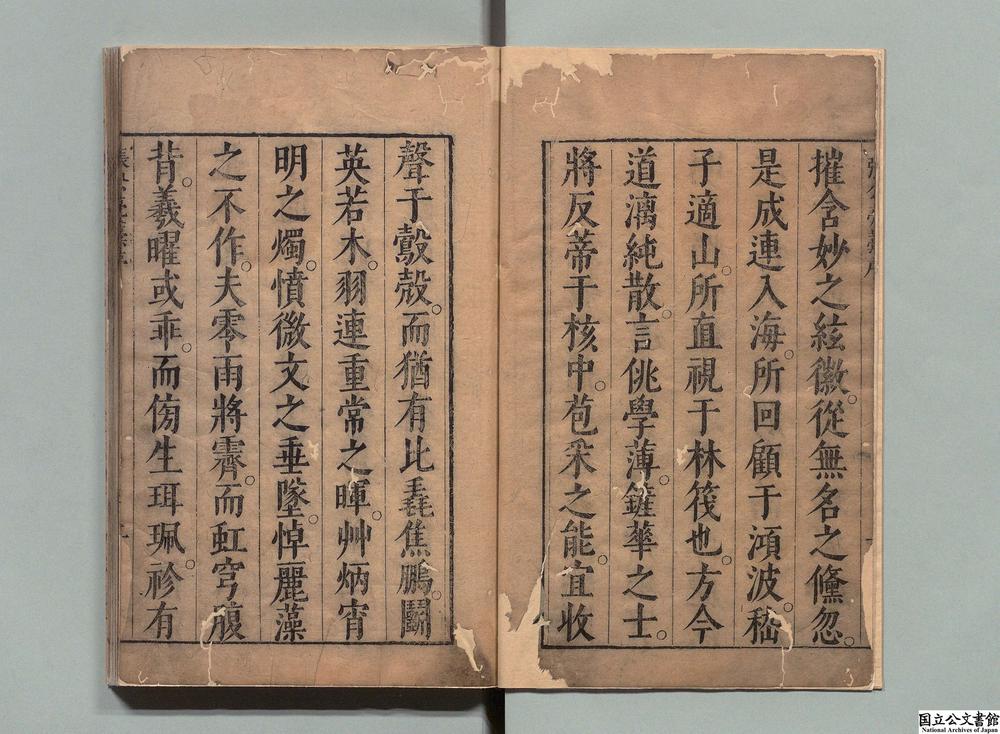 摧含妙之絃徽。從無名之儵忽。
是成連入海。所回顧于澒波。嵇
子適山。所直視于林筏也。方今
道漓純散。言佻學薄。鏟華之士。
將反蒂于核中。苞釆之能。宜收
聲于鷇殻。而猶有比毳焦鵬。鬭
英若木。羽連重常之暉。艸炳宵
明之燭。憤微文之垂墜。悼麗藻
之不作。夫零雨將霽。而虹穹腹
背。羲曜或乖。而傍生珥珮。祲有
国立公文書館
National Archives of Japan